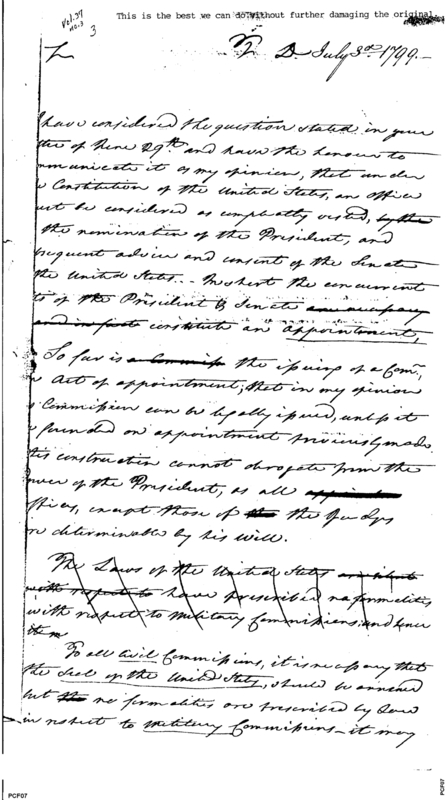 This is the best we can do without further damaging the original.
Vol. 37
no. 3
3
July 3rd 1799.—
have considered the question stated in your
of June 29th and have the honour to
communicate it as my opinion, that under
Constitution of the United States, an office
must be considered as completely vested,
the nomination of the President, and
subsequent advice and consent of the Senate
the United States. - In short the concurrent
of the President & Senate
constitute an appointment,
So far is the issuing of a Comn.
Act of appointment; that in my opinion
Commission can be legally issued, unless it
founded on appointment previously made.
This construction cannot derogate from the
power of the President, as all
offices, except those of the Judges
are determinable by his will.
The Laws of the United States
with respect to have prescribed no formalities
with respect to Military Commissions; and hence
them
To all Civil Commissions, it is necessary that
the Seal of the United States, should be annexed
but no formalities are prescribed by Law
in respect to Military Commissions - it may
PCF07
PCF07